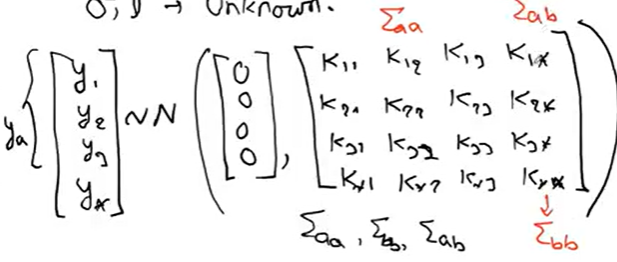 σ, l → Unknown.
Σaa Σab
ya { [ y1 y2 y3 y* ] ~ N ( [ 0 0 0 0 ] , [ K11 K12 K13 K1*
K21 K22 K23 K2*
K31 K32 K33 K3*
K*1 K*2 K*3 K** ] )
Σaa , Σbb , Σab ↓ Σbb